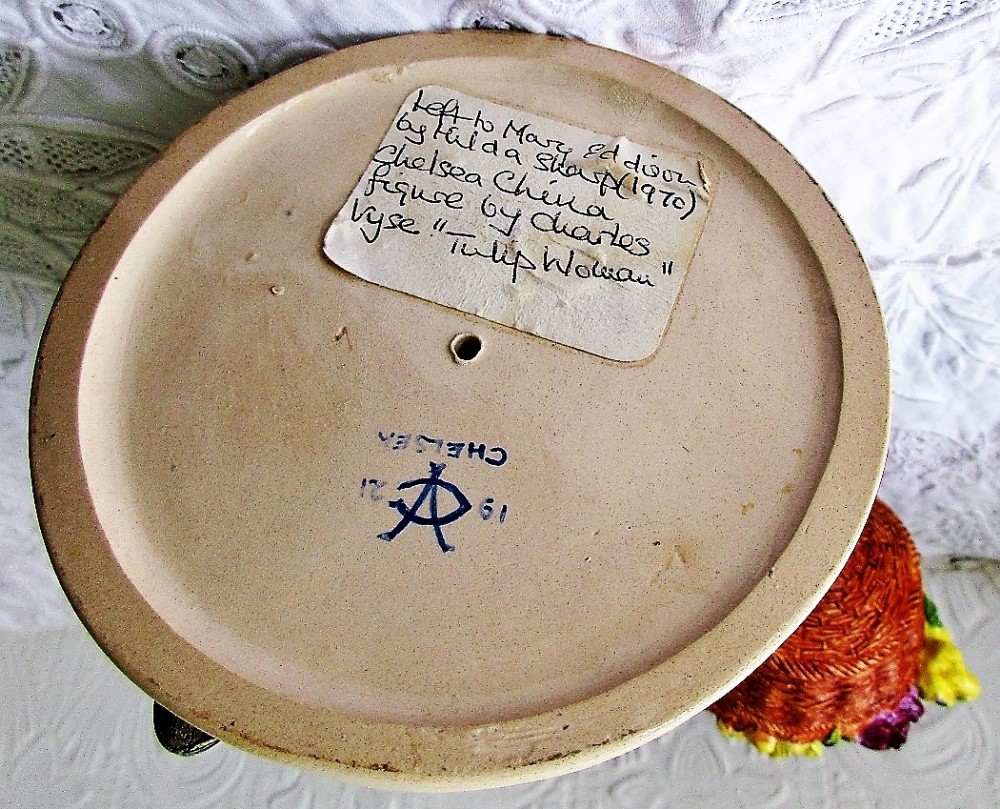 Left to Mary Eddison
by Hilda Sharp (1970)
Chelsea China
figure by Charles
Vyse "Tulip Woman"
19 21
CHELSEA